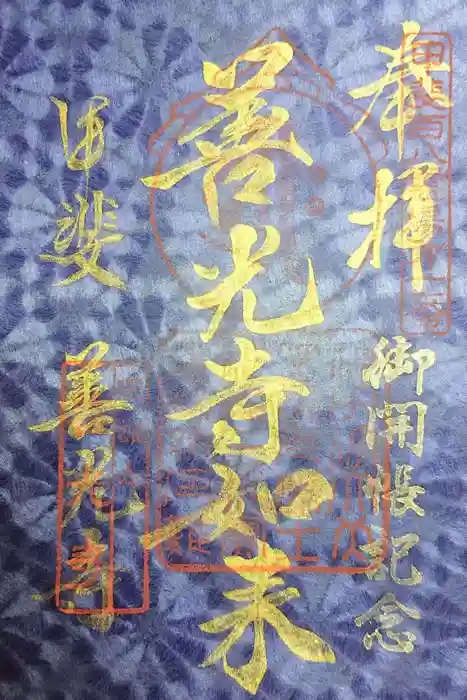 奉拝
御開帳記念
善光寺如来
甲斐
善光寺